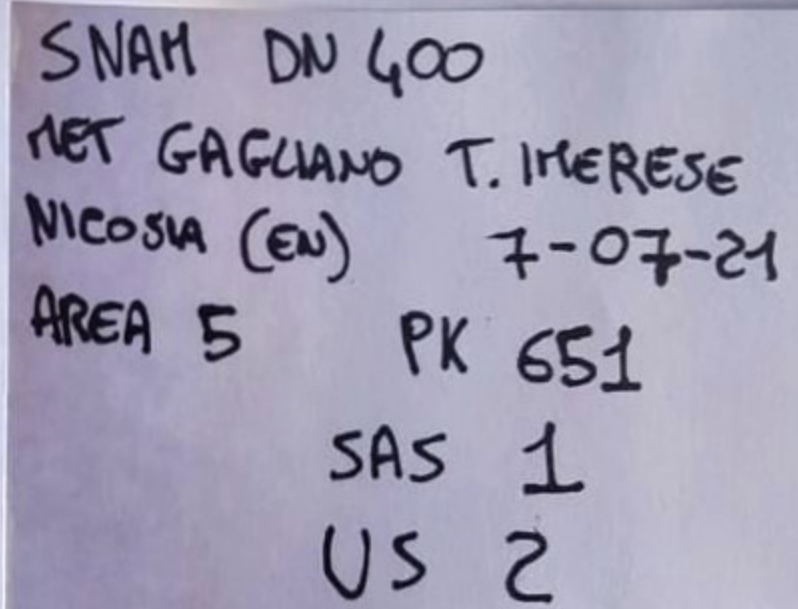 SNAM DN 400
MET GAGLIANO T. IMERESE
NICOSIA (EN) 7-07-21
AREA 5 PK 651
SAS 1
US 2